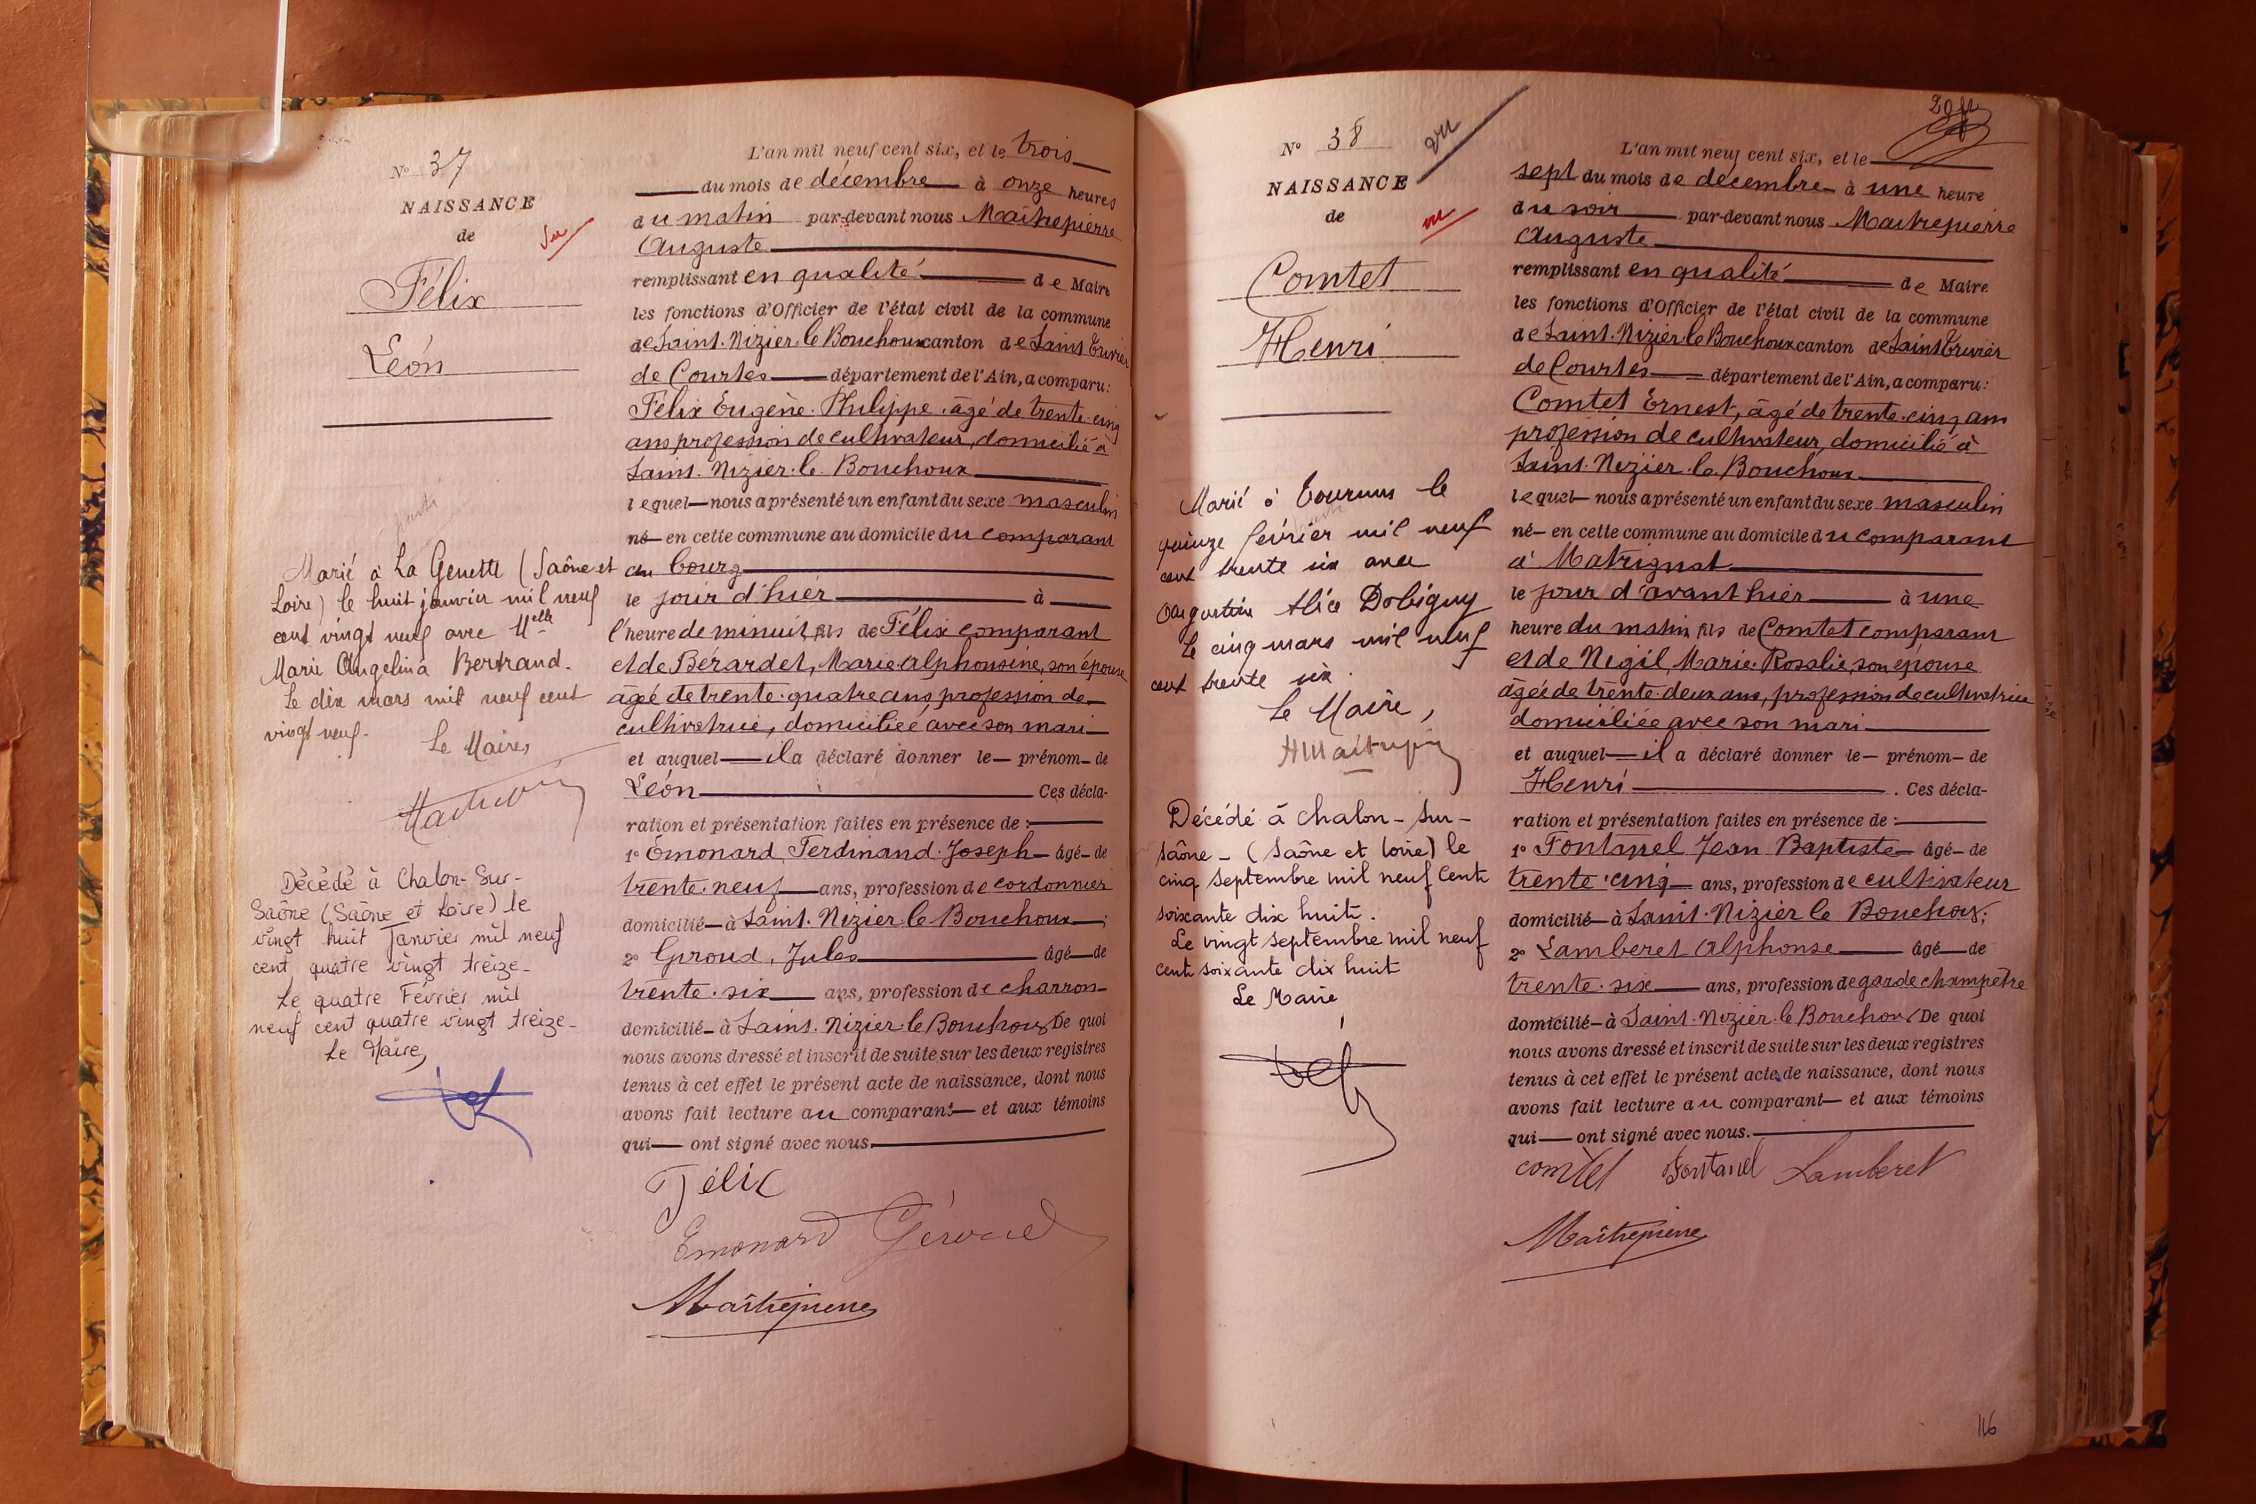 N° 37
NAISSANCE
de
Vu
Félix
Léon
Marié à La Genette (Saône et
Loire) le huit janvier mil neuf
cent vingt neuf avec Melle
Marie Angelina Bertrand.
Le dix mars mil neuf cent
vingt neuf.
Le Maire,
Décédé à Chalon-Sur-
Saône (Saône et Loire) le
vingt huit Janvier mil neuf
cent quatre vingt treize-
Le quatre Février mil
neuf cent quatre vingt treize-
Le Maire,
L'an mil neuf cent six, et le trois
du mois de décembre à onze heures
du matin par-devant nous Maitrepierre
Auguste
remplissant en qualité de Maire
les fonctions d'Officier de l'état civil de la commune
de Saint-Nizier-le-Bouchoux canton de Saint Trivier
de Courtes département de l'Ain, a comparu:
Félix Eugène Philippe, âgé de trente-cinq
ans profession de cultivateur, domicilié à
Saint-Nizier-le-Bouchoux
lequel nous a présenté un enfant du sexe masculin
né en cette commune au domicile du comparant
au bourg
le jour d'hier à
l'heure de minuit, fils de Félix comparant
et de Bérardet, Marie-Alphonsine, son épouse
âgé de trente-quatre ans, profession de
cultivatrice, domiciliée avec son mari
et auquel il a déclaré donner le prénom de
Léon Ces décla-
ration et présentation faites en présence de :
1° Émonard, Ferdinand-Joseph âgé de
trente-neuf ans, profession de cordonnier
domicilié à Saint-Nizier-le-Bouchoux ;
2° Giroud, Jules âgé de
trente-six ans, profession de charron
domicilié à Saint-Nizier-le-Bouchoux De quoi
nous avons dressé et inscrit de suite sur les deux registres
tenus à cet effet le présent acte de naissance, dont nous
avons fait lecture au comparant et aux témoins
qui ont signé avec nous.
Félix
Emonard Géroud
Maitrepierre
N° 38
vu
NAISSANCE
de
vu
Comtet
Henri
Marié à Tournus le
quinze février mil neuf
cent trente six avec
Augustine Alice Dobigny
Le cinq mars mil neuf
cent trente six.
Le Maire,
AMaitrepierre
Décédé à Chalon-sur-
Saône - (Saône et Loire) le
cinq septembre mil neuf cent
soixante dix huit.
Le vingt septembre mil neuf
cent soixante dix huit
Le Maire
L'an mil neuf cent six, et le
sept du mois de décembre à une heure
du soir par-devant nous Maitrepierre
Auguste
remplissant en qualité de Maire
les fonctions d'Officier de l'état civil de la commune
de Saint-Nizier-le-Bouchoux canton de Saint Trivier
de Courtes département de l'Ain, a comparu:
Comtet Ernest, âgé de trente-cinq ans
profession de cultivateur, domicilié à
Saint-Nizier-le-Bouchoux
lequel nous a présenté un enfant du sexe masculin
né en cette commune au domicile du comparant
à Matrignat
le jour d'avant hier à une
heure du matin, fils de Comtet comparant
et de Nigil, Marie-Rosalie, son épouse
âgée de trente-deux ans, profession de cultivatrice
domiciliée avec son mari
et auquel il a déclaré donner le prénom de
Henri . Ces décla-
ration et présentation faites en présence de :
1° Fontanel Jean Baptiste âgé de
trente-cinq ans, profession de cultivateur
domicilié à Saint-Nizier le Bouchoux;
2° Lamberet Alphonse âgé de
trente-six ans, profession de garde champêtre
domicilié à Saint-Nizier-le-Bouchoux De quoi
nous avons dressé et inscrit de suite sur les deux registres
tenus à cet effet le présent acte de naissance, dont nous
avons fait lecture au comparant et aux témoins
qui ont signé avec nous.
Comtet Fontanel Lamberet
Maitrepierre
116